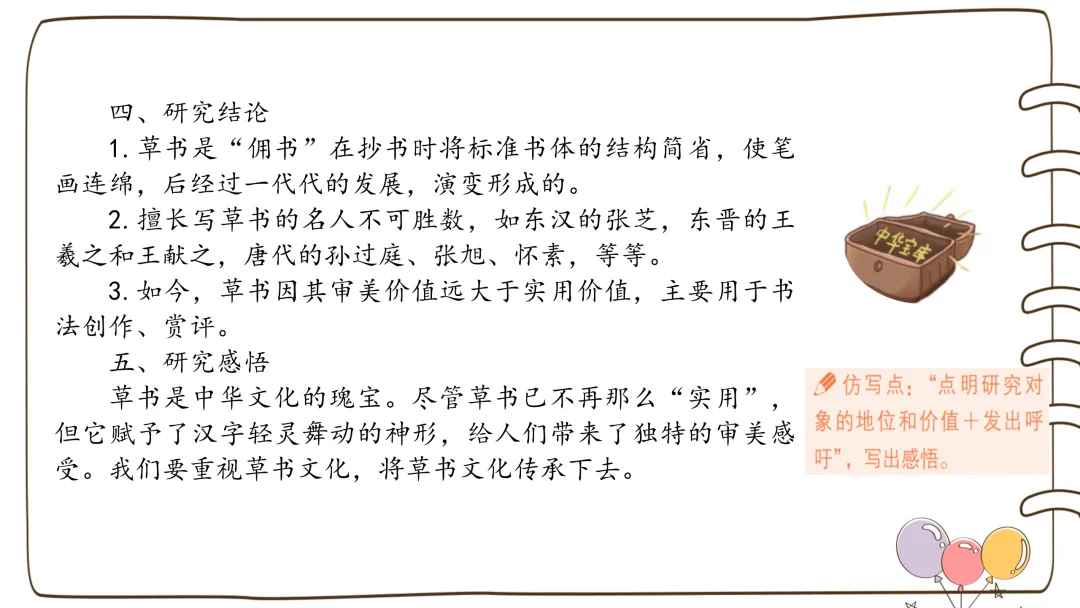 四、研究结论
1.草书是“佣书”在抄书时将标准书体的结构简省，使笔
画连绵，后经过一代代的发展，演变形成的。
2.擅长写草书的名人不可胜数，如东汉的张芝，东晋的王
羲之和王献之，唐代的孙过庭、张旭、怀素，等等。
3.如今，草书因其审美价值远大于实用价值，主要用于书
法创作、赏评。
五、研究感悟
草书是中华文化的瑰宝。尽管草书已不再那么“实用”，
但它赋予了汉字轻灵舞动的神形，给人们带来了独特的审美感
受。我们要重视草书文化，将草书文化传承下去。
中华宝库
仿写点：“点明研究对
象的地位和价值＋发出呼
吁”，写出感悟。